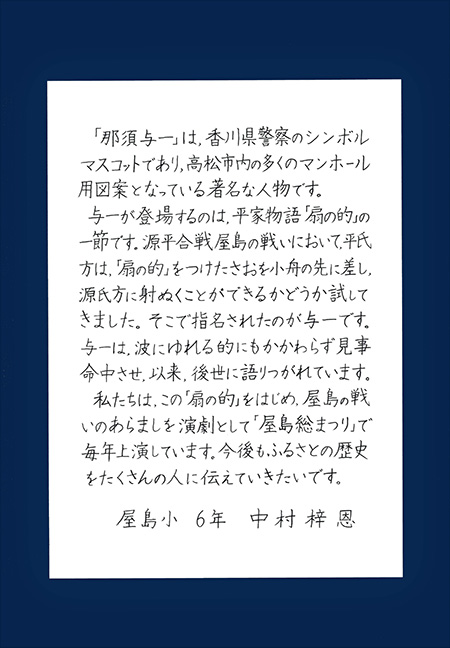 「那須与一」は，香川県警察のシンボル
マスコットであり，高松市内の多くのマンホール
用図案となっている著名な人物です。
与一が登場するのは，平家物語「扇の的」の
一節です。源平合戦屋島の戦いにおいて，平氏
方は，「扇の的」をつけたさおを小舟の先に差し，
源氏方に射ぬくことができるかどうか試して
きました。そこで指名されたのが与一です。
与一は，波にゆれる的にもかかわらず見事
命中させ，以来，後世に語りつがれています。
私たちは，この「扇の的」をはじめ，屋島の戦
いのあらましを演劇として「屋島総まつり」で
毎年上演しています。今後もふるさとの歴史
をたくさんの人に伝えていきたいです。
屋島小 6年 中村梓恩